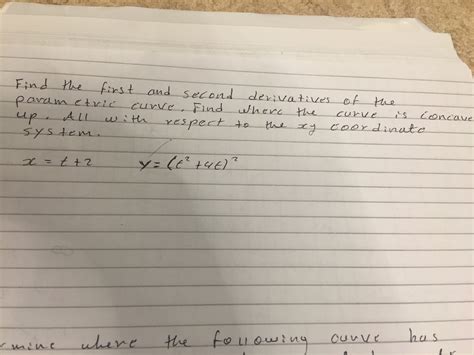 Find the first and second derivatives of the
parametric curve. Find where the curve is concave
up. All with respect to the xy coordinate
system.
x = t + 2 y = (t² + 4t)²
mine where the following curve has